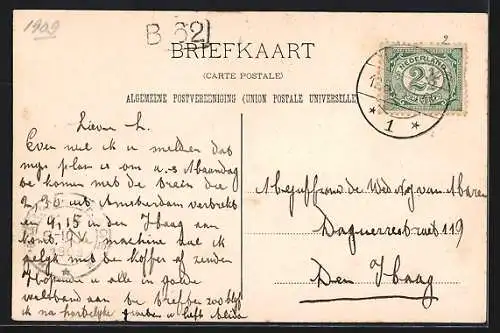 1909
B 62
BRIEFKAART
(CARTE POSTALE)
ALGEMEENE POSTVEREENIGING (UNION POSTALE UNIVERSELLE)
NEDERLAND
2½
1
Lieve L.
Even wil ik u melden dat
mijn plan is om a.s Maandag
te komen met de trein die
2,30 uit Amsterdam vertrekt
en 4,15 in den Haag aan
komt. De machine zal ik
gelijk met de koffer af zenden
Hopende u alle in goede
welstand aan te treffen zoo blijf
ik na hartelijke groeten u liefh
Mejuffrouw de Wed
Daguerrestraat 119
Den Haag